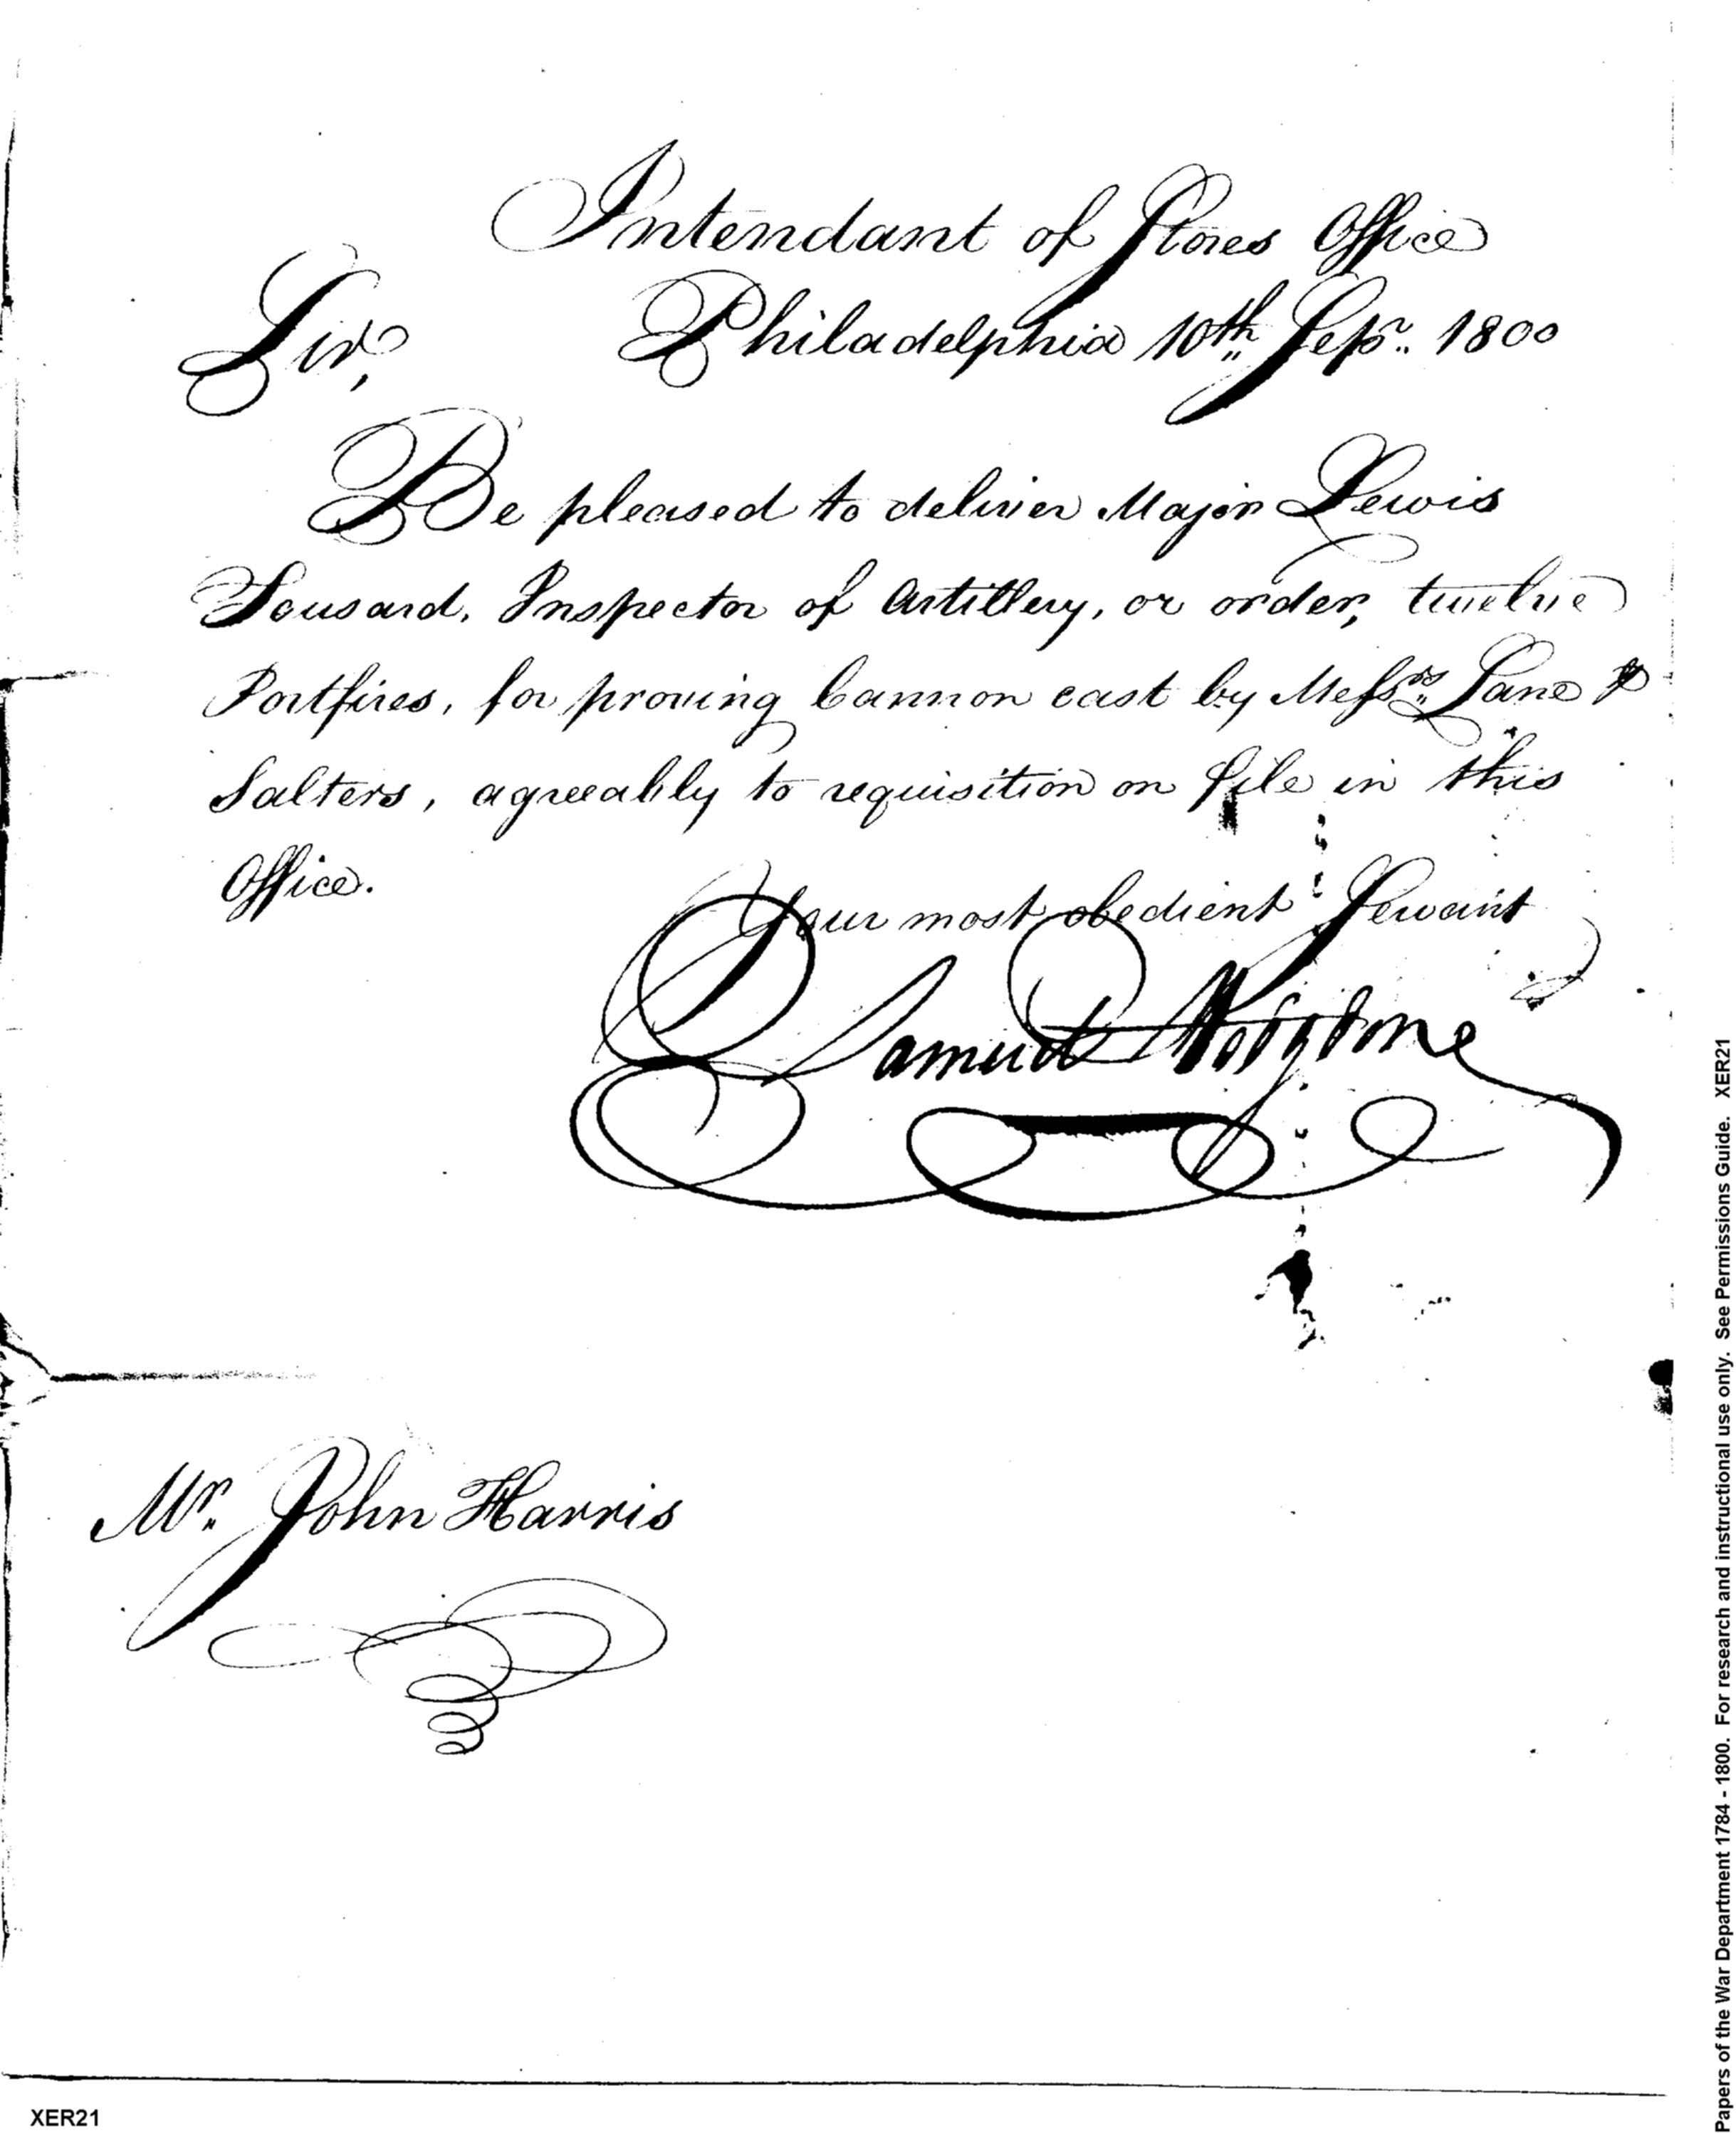 Intendant of Stores Office
Philadelphia 10th Sepr. 1800
Sir,
Be pleased to deliver Major Lewis
Tousard, Inspector of Artillery, or order, twelve
Portfires, for proving Cannon cast by Messrs. Lane &
Salters, agreeably to requisition on file in this
Office.
Your most obedient Servant
Samuel Hodgdon
Mr. John Harris
XER21
Papers of the War Department 1784 - 1800. For research and instructional use only. See Permissions Guide. XER21